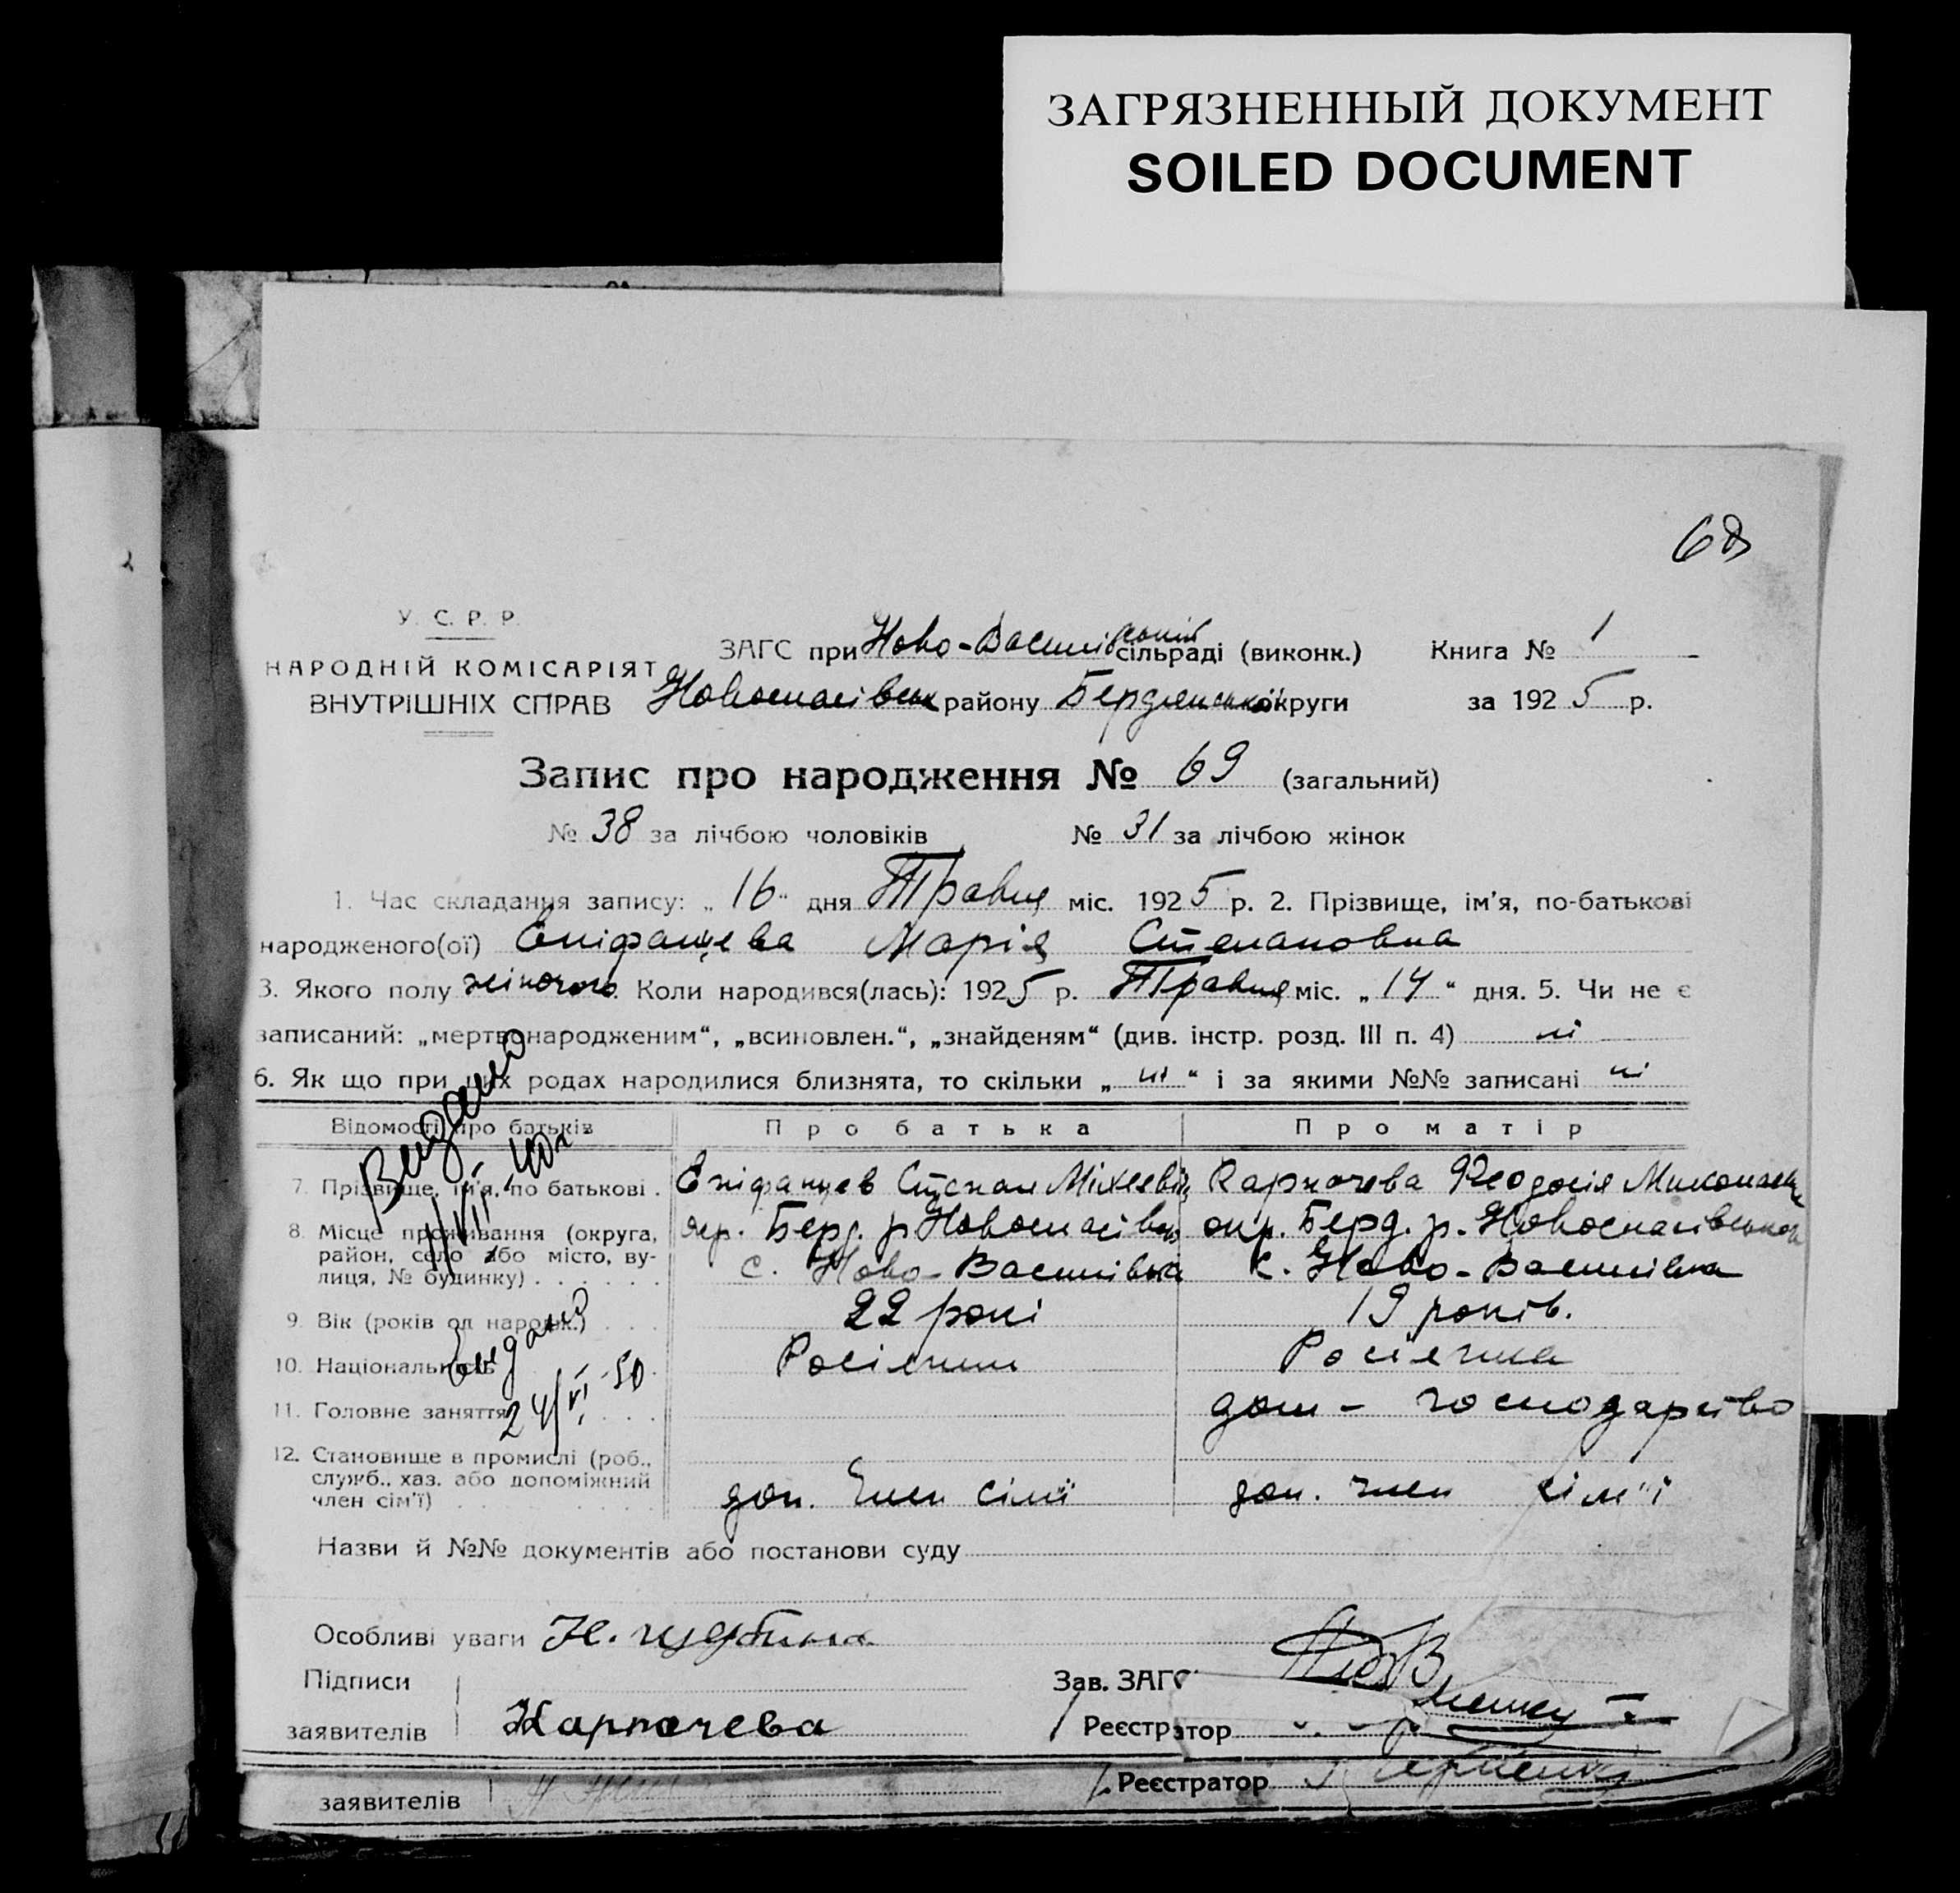 ЗАГРЯЗНЕННЫЙ ДОКУМЕНТ
SOILED DOCUMENT
68
У. С. Р. Р.
НАРОДНІЙ КОМІСАРІЯТ
ВНУТРІШНІХ СПРАВ
ЗАГС при Ново-Василівській сільраді (виконк.) Книга № 1
Новоспасівськ району Бердянської округи за 1925 р.
Запис про народження № 69 (загальний)
№ 38 за лічбою чоловіків № 31 за лічбою жінок
1. Час складання запису: „16“ дня Травня міс. 1925 р. 2. Прізвище, ім'я, по-батькові
народженого(ої) Епіфанцева Марія Степановна
3. Якого полу жіночого. Коли народився(лась): 1925 р. Травня міс. „14“ дня. 5. Чи не є
записаний: „мертвонародженим“, „всиновлен.“, „знайденям“ (див. інстр. розд. III п. 4) ні
6. Як що при цих родах народилися близнята, то скільки „ні“ і за якими №№ записані ні
Відомості про батьків Про батька Про матір
7. Прізвище, ім'я, по батькові. Епіфанцев Степан Міхеевіч Карпачева Феодосія Миколаевн
8. Місце проживання (округа, район, село або місто, вулиця, № будинку) окр. Берд. р Новоспасівськ окр. Берд. р. Новоспасівського
с. Ново-Василівка с. Ново-Василівка
9. Вік (років од народж.) 22 рокі 19 років.
10. Національність Росіянин Росіячка
11. Головне заняття дом- господарство
12. Становище в промислі (роб., служб., хаз. або допоміжний член сім'ї) доп. член сімї доп. член сім'ї
Видано
Видано
24/VI-50
Назви й №№ документів або постанови суду
Особливі уваги
Підписи
заявителів Карпачева
Зав. ЗАГС
Реєстратор
заявителів Реєстратор